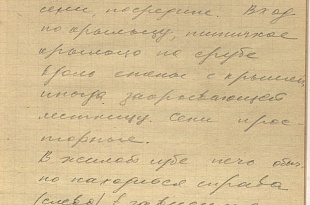 сени посредине. Вход
по крыльцу, типичное
крыльцо на срубе
вдоль стены с крышей,
иногда закрывающей
лестницу. Сени прос-
торные.
В жилой избе печь обыч.
но находился справа
(слева) в зависимо